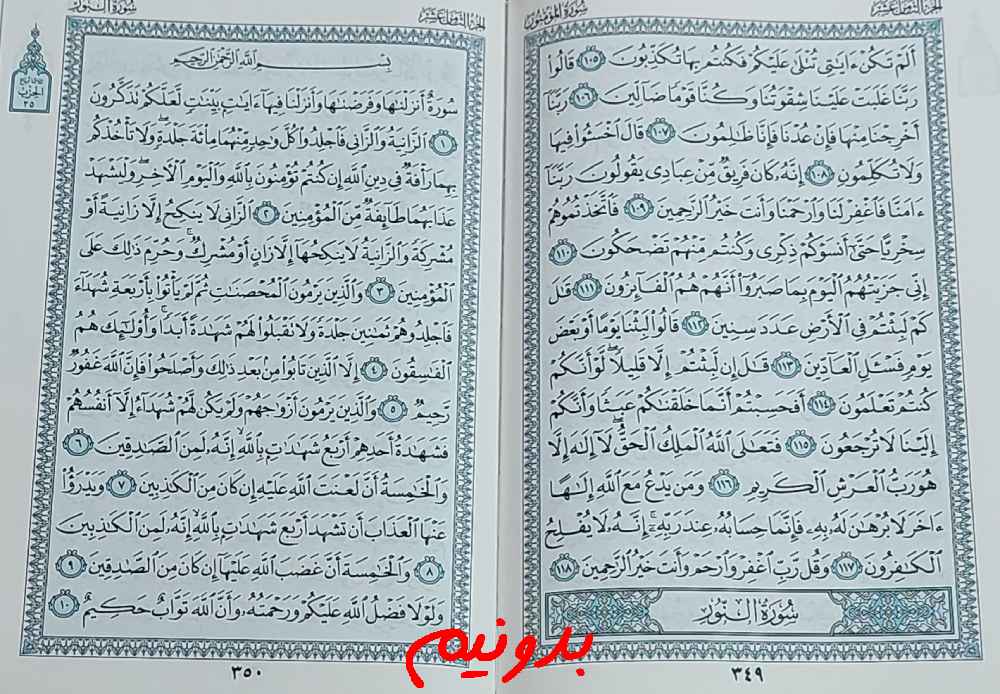 الجزء الثامن عشر
سورة المؤمنون
أَلَمْ تَكُنْ ءَايَٰتِي تُتْلَىٰ عَلَيْكُمْ فَكُنتُم بِهَا تُكَذِّبُونَ ١٠٥ قَالُوا۟
رَبَّنَا غَلَبَتْ عَلَيْنَا شِقْوَتُنَا وَكُنَّا قَوْمًا ضَآلِّينَ ١٠٦ رَبَّنَآ
أَخْرِجْنَا مِنْهَا فَإِنْ عُدْنَا فَإِنَّا ظَٰلِمُونَ ١٠٧ قَالَ ٱخْسَـُٔوا۟ فِيهَا
وَلَا تُكَلِّمُونِ ١٠٨ إِنَّهُۥ كَانَ فَرِيقٌ مِّنْ عِبَادِي يَقُولُونَ رَبَّنَآ
ءَامَنَّا فَٱغْفِرْ لَنَا وَٱرْحَمْنَا وَأَنتَ خَيْرُ ٱلرَّٰحِمِينَ ١٠٩ فَٱتَّخَذْتُمُوهُمْ
سِخْرِيًّا حَتَّىٰٓ أَنسَوْكُمْ ذِكْرِي وَكُنتُم مِّنْهُمْ تَضْحَكُونَ ١١٠
إِنِّي جَزَيْتُهُمُ ٱلْيَوْمَ بِمَا صَبَرُوٓا۟ أَنَّهُمْ هُمُ ٱلْفَآئِزُونَ ١١١ قَٰلَ
كَمْ لَبِثْتُمْ فِي ٱلْأَرْضِ عَدَدَ سِنِينَ ١١٢ قَالُوا۟ لَبِثْنَا يَوْمًا أَوْ بَعْضَ
يَوْمٍ فَسْـَٔلِ ٱلْعَآدِّينَ ١١٣ قَٰلَ إِن لَّبِثْتُمْ إِلَّا قَلِيلًا لَّوْ أَنَّكُمْ
كُنتُمْ تَعْلَمُونَ ١١٤ أَفَحَسِبْتُمْ أَنَّمَا خَلَقْنَٰكُمْ عَبَثًا وَأَنَّكُمْ
إِلَيْنَا لَا تُرْجَعُونَ ١١٥ فَتَعَٰلَى ٱللَّهُ ٱلْمَلِكُ ٱلْحَقُّ لَآ إِلَٰهَ إِلَّا
هُوَ رَبُّ ٱلْعَرْشِ ٱلْكَرِيمِ ١١٦ وَمَن يَدْعُ مَعَ ٱللَّهِ إِلَٰهًا
ءَاخَرَ لَا بُرْهَٰنَ لَهُۥ بِهِۦ فَإِنَّمَا حِسَابُهُۥ عِندَ رَبِّهِۦٓ إِنَّهُۥ لَا يُفْلِحُ
ٱلْكَٰفِرُونَ ١١٧ وَقُل رَّبِّ ٱغْفِرْ وَٱرْحَمْ وَأَنتَ خَيْرُ ٱلرَّٰحِمِينَ ١١٨
سُورَةُ النُّورِ
٣٤٩
الجزء الثامن عشر
سورة النور
بِسْمِ ٱللَّهِ ٱلرَّحْمَٰنِ ٱلرَّحِيمِ
سُورَةٌ أَنزَلْنَٰهَا وَفَرَضْنَٰهَا وَأَنزَلْنَا فِيهَآ ءَايَٰتٍۭ بَيِّنَٰتٍ لَّعَلَّكُمْ تَذَكَّرُونَ
١ ٱلزَّانِيَةُ وَٱلزَّانِي فَٱجْلِدُوا۟ كُلَّ وَٰحِدٍ مِّنْهُمَا مِا۟ئَةَ جَلْدَةٍ وَلَا تَأْخُذْكُم
بِهِمَا رَأْفَةٌ فِي دِينِ ٱللَّهِ إِن كُنتُمْ تُؤْمِنُونَ بِٱللَّهِ وَٱلْيَوْمِ ٱلْءَاخِرِ وَلْيَشْهَدْ
عَذَابَهُمَا طَآئِفَةٌ مِّنَ ٱلْمُؤْمِنِينَ ٢ ٱلزَّانِي لَا يَنكِحُ إِلَّا زَانِيَةً أَوْ
مُشْرِكَةً وَٱلزَّانِيَةُ لَا يَنكِحُهَآ إِلَّا زَانٍ أَوْ مُشْرِكٌ وَحُرِّمَ ذَٰلِكَ عَلَى
ٱلْمُؤْمِنِينَ ٣ وَٱلَّذِينَ يَرْمُونَ ٱلْمُحْصَنَٰتِ ثُمَّ لَمْ يَأْتُوا۟ بِأَرْبَعَةِ شُهَدَآءَ
فَٱجْلِدُوهُمْ ثَمَٰنِينَ جَلْدَةً وَلَا تَقْبَلُوا۟ لَهُمْ شَهَٰدَةً أَبَدًا وَأُو۟لَٰٓئِكَ هُمُ
ٱلْفَٰسِقُونَ ٤ إِلَّا ٱلَّذِينَ تَابُوا۟ مِنۢ بَعْدِ ذَٰلِكَ وَأَصْلَحُوا۟ فَإِنَّ ٱللَّهَ غَفُورٌ
رَّحِيمٌ ٥ وَٱلَّذِينَ يَرْمُونَ أَزْوَٰجَهُمْ وَلَمْ يَكُن لَّهُمْ شُهَدَآءُ إِلَّآ أَنفُسُهُمْ
فَشَهَٰدَةُ أَحَدِهِمْ أَرْبَعُ شَهَٰدَٰتٍۭ بِٱللَّهِ إِنَّهُۥ لَمِنَ ٱلصَّٰدِقِينَ ٦
وَٱلْخَٰمِسَةُ أَنَّ لَعْنَتَ ٱللَّهِ عَلَيْهِ إِن كَانَ مِنَ ٱلْكَٰذِبِينَ ٧ وَيَدْرَؤُا۟
عَنْهَا ٱلْعَذَابَ أَن تَشْهَدَ أَرْبَعَ شَهَٰدَٰتٍۭ بِٱللَّهِ إِنَّهُۥ لَمِنَ ٱلْكَٰذِبِينَ
٨ وَٱلْخَٰمِسَةَ أَنَّ غَضَبَ ٱللَّهِ عَلَيْهَآ إِن كَانَ مِنَ ٱلصَّٰدِقِينَ ٩
وَلَوْلَا فَضْلُ ٱللَّهِ عَلَيْكُمْ وَرَحْمَتُهُۥ وَأَنَّ ٱللَّهَ تَوَّابٌ حَكِيمٌ ١٠
٣٥٠
الحزب
٣٥
بدونیم